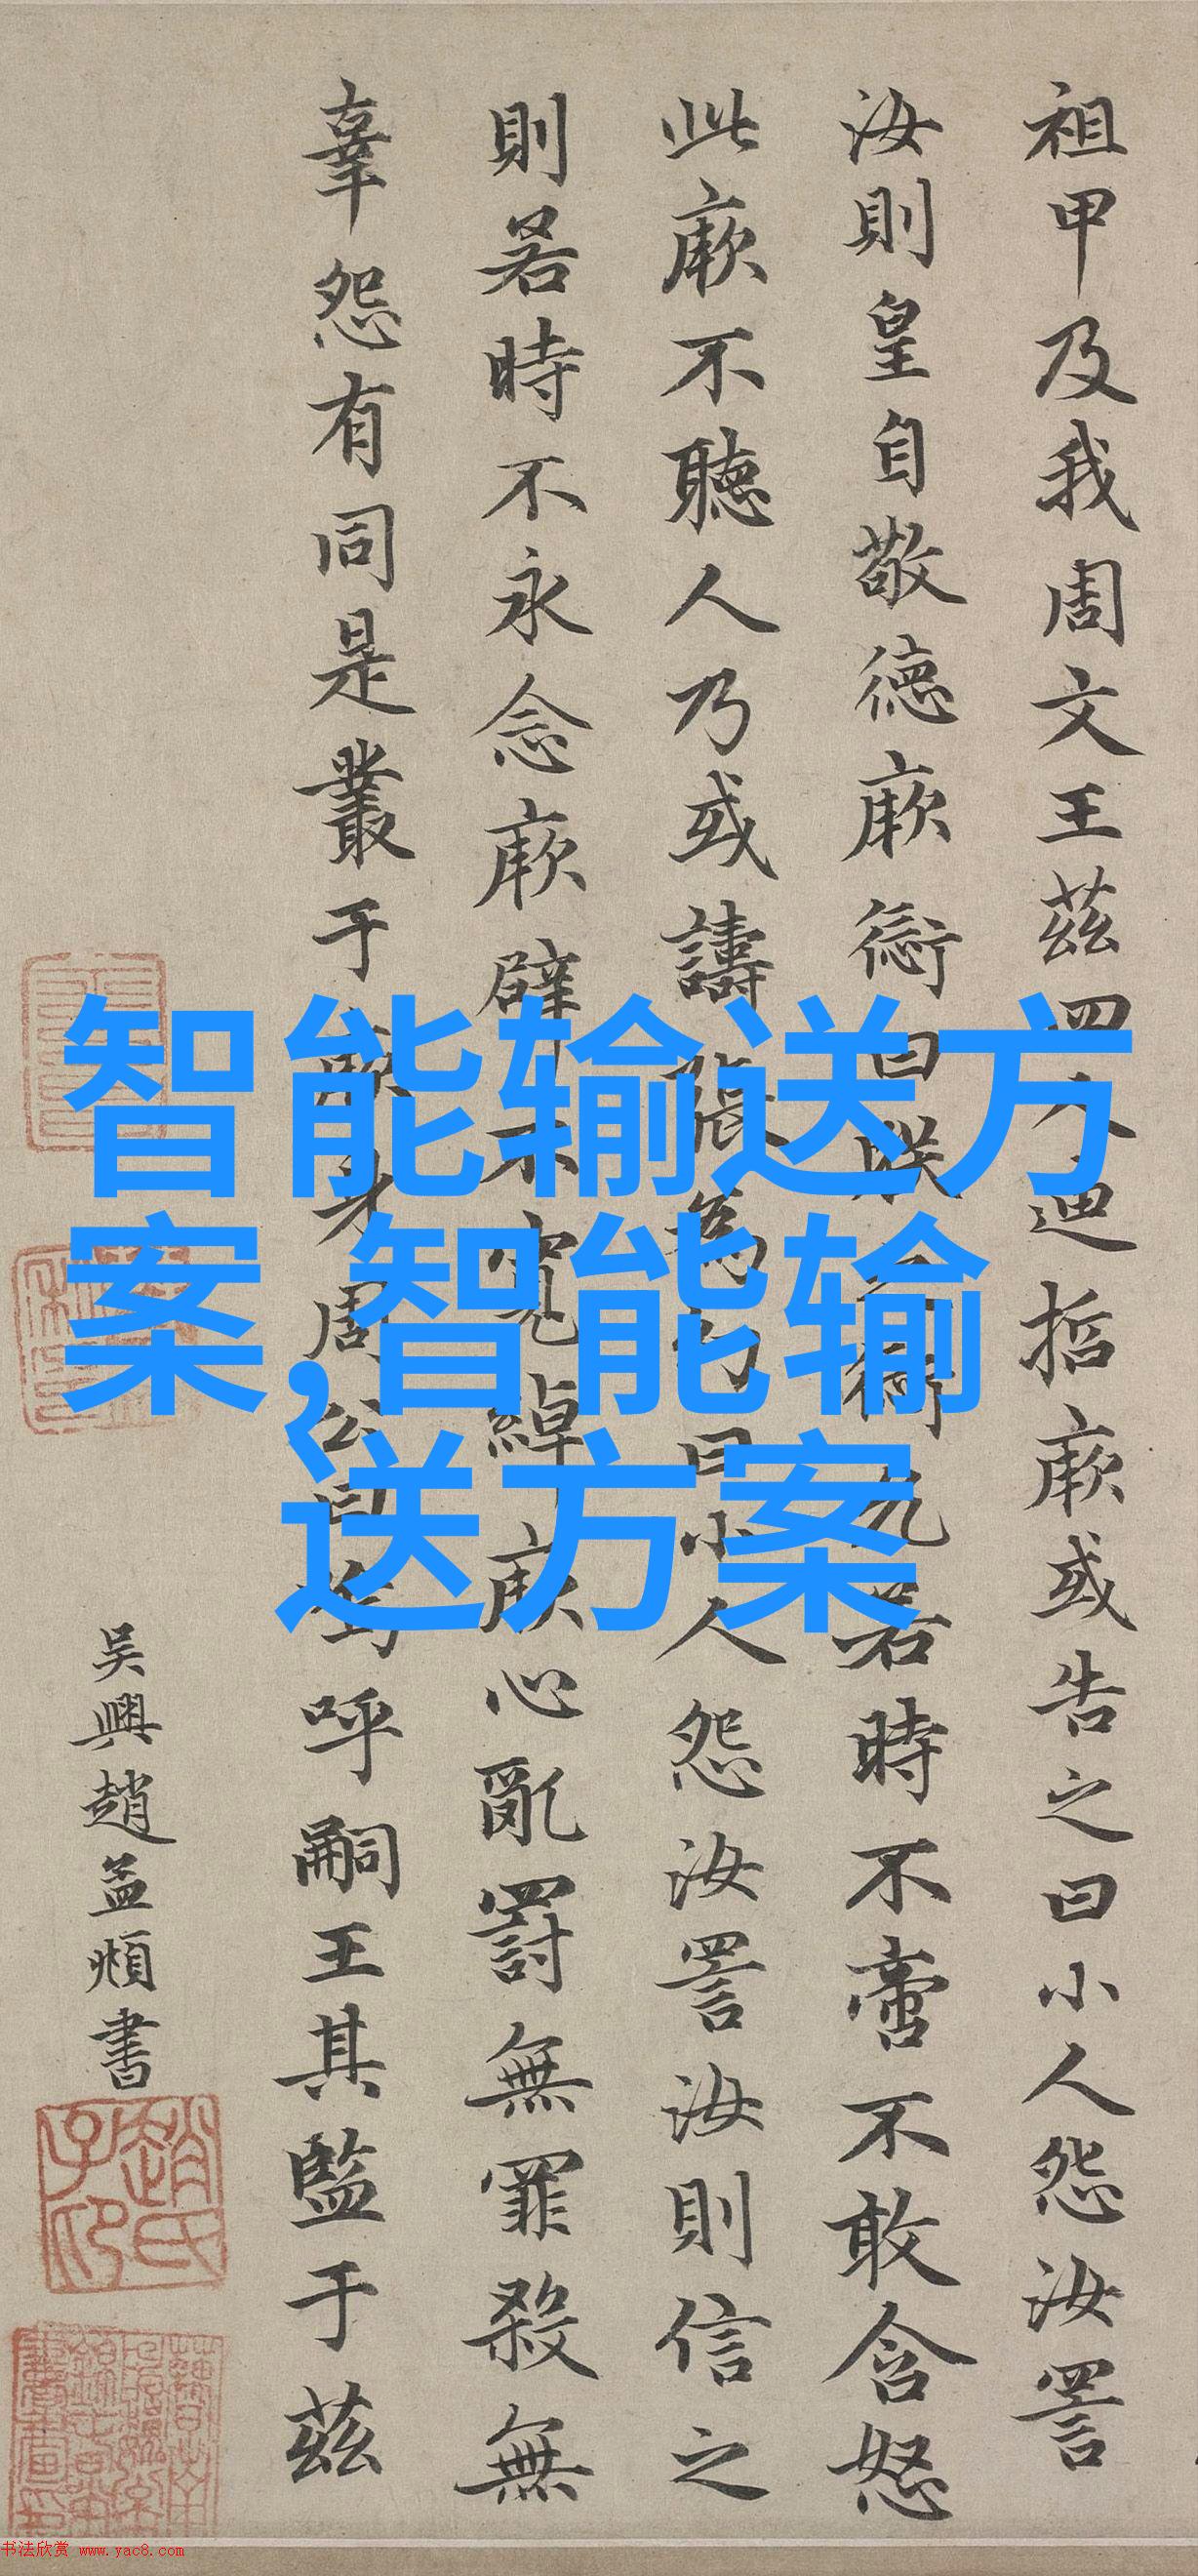 祖甲及我周文王茲四人迪哲厥或告之曰小人怨汝詈
汝則皇自敬德厥愆曰朕之愆允若時不啻不敢含怒
此厥不聽人乃或譸張為幻曰小人怨汝詈汝則信之
則若時不永念厥辟不寬綽厥心亂罰無罪殺無
辜怨有同是叢于厥身周公曰嗚呼嗣王其監于茲
吳興趙孟頫書
趙氏子昂
智能输送方
案,智能输
送方案
书法欣赏 www.yac8.com